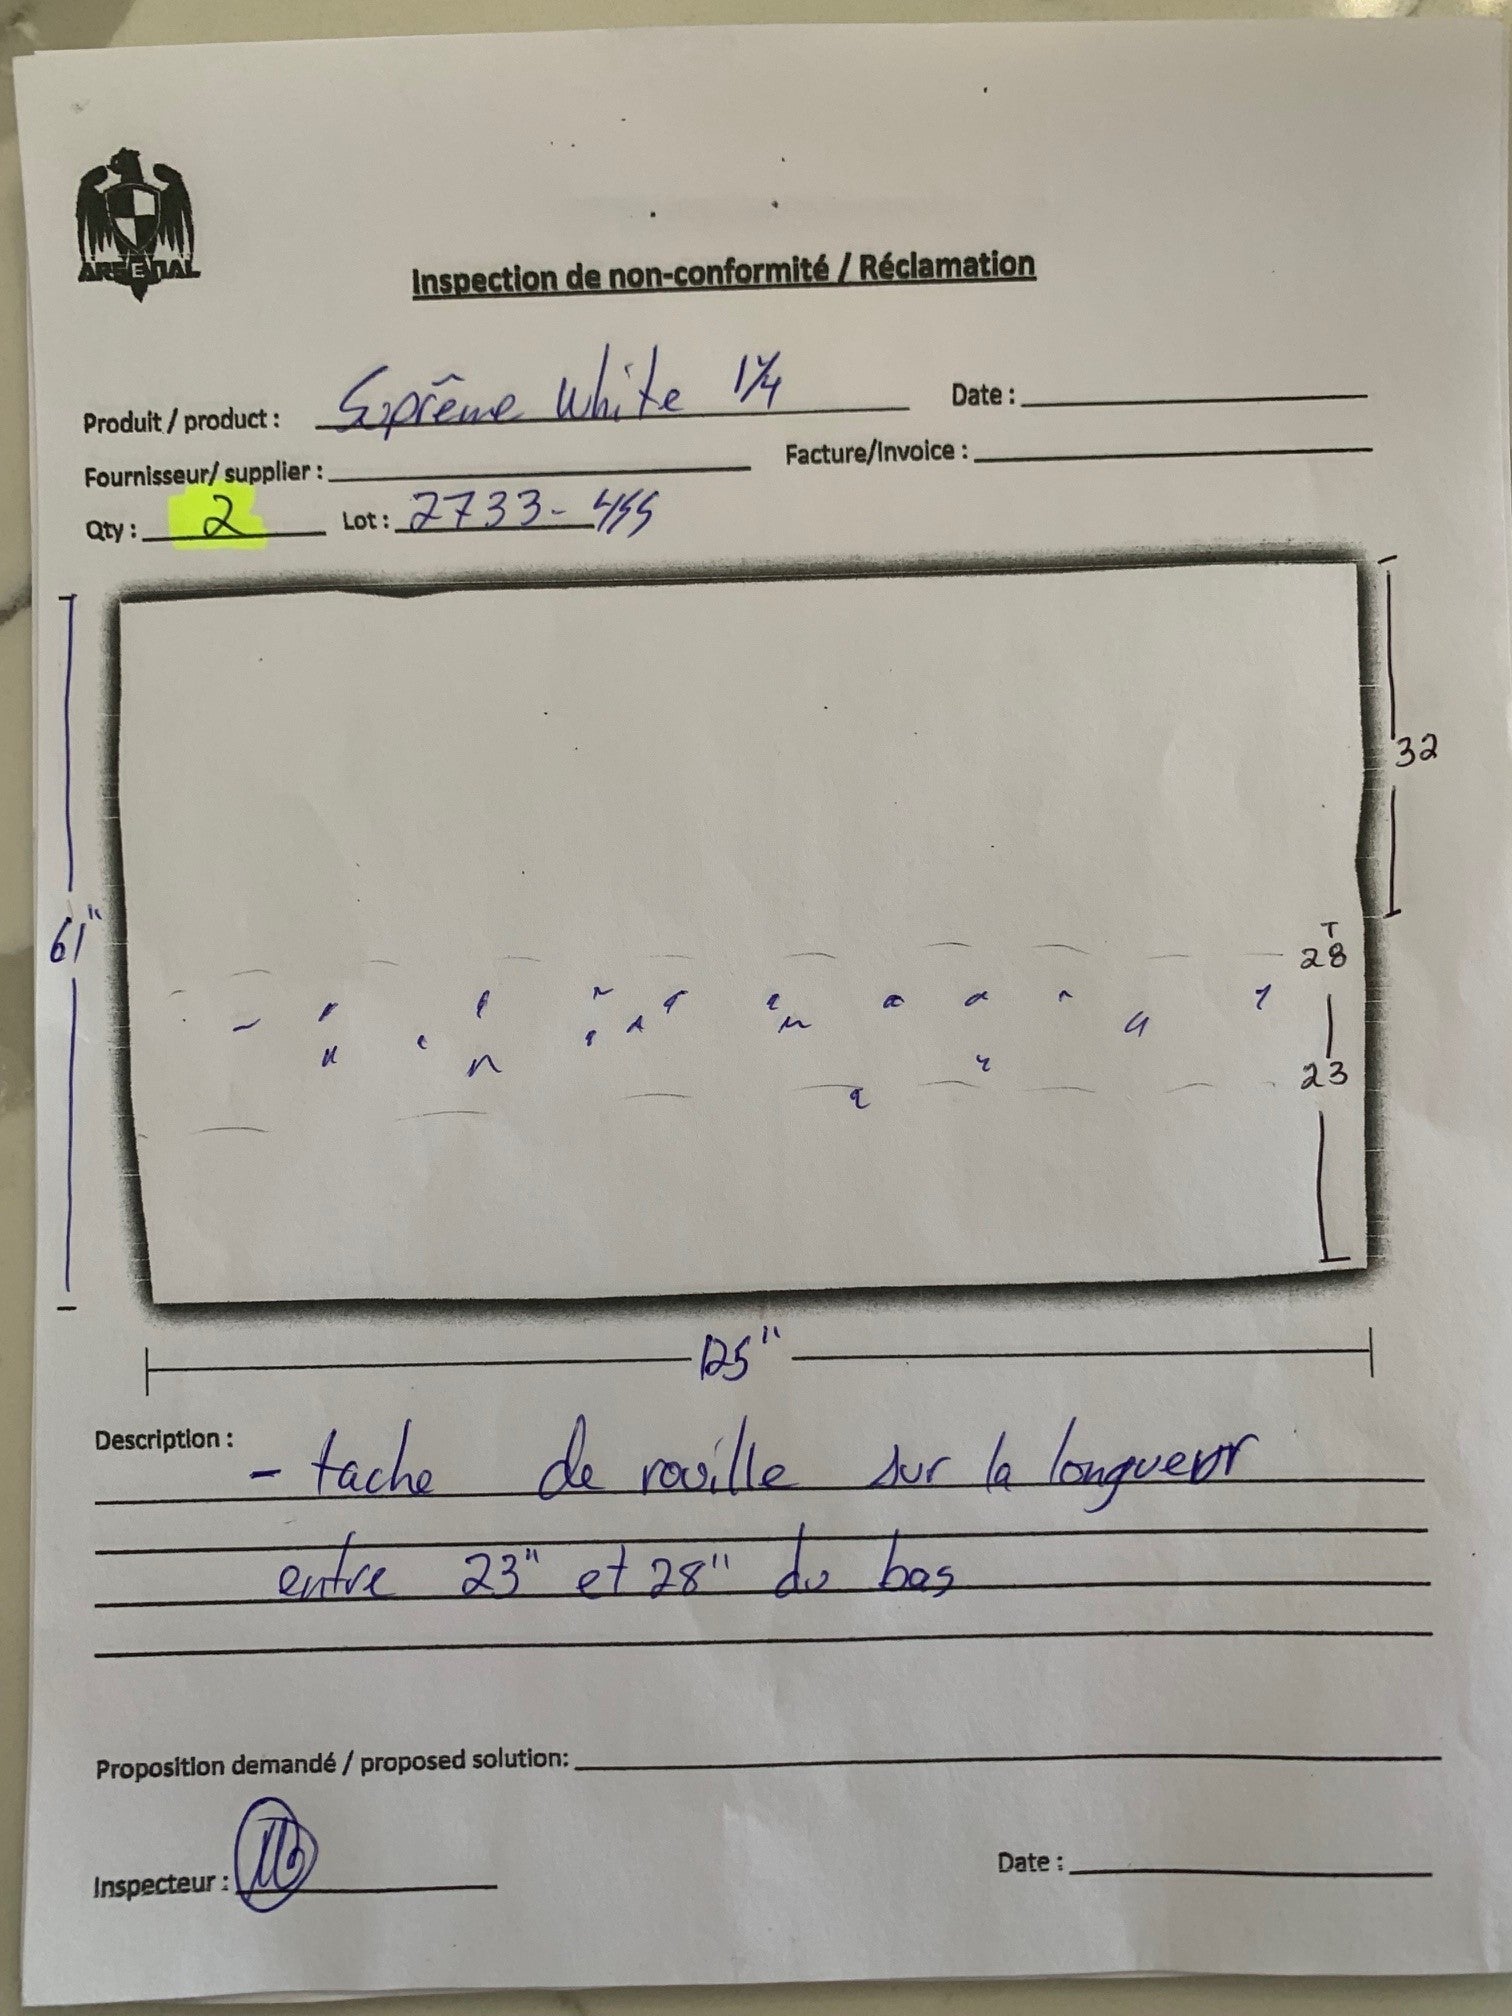 ARSENAL
Inspection de non-conformité / Réclamation
Produit / product : Suprême White 1¼
Date :
Fournisseur/ supplier :
Facture/Invoice :
Qty : 2 Lot : 2733-455
32
61"
28
23
125"
Description :
- tache de rouille sur la longueur
entre 23" et 28" du bas
Proposition demandé / proposed solution:
Inspecteur :
Date :